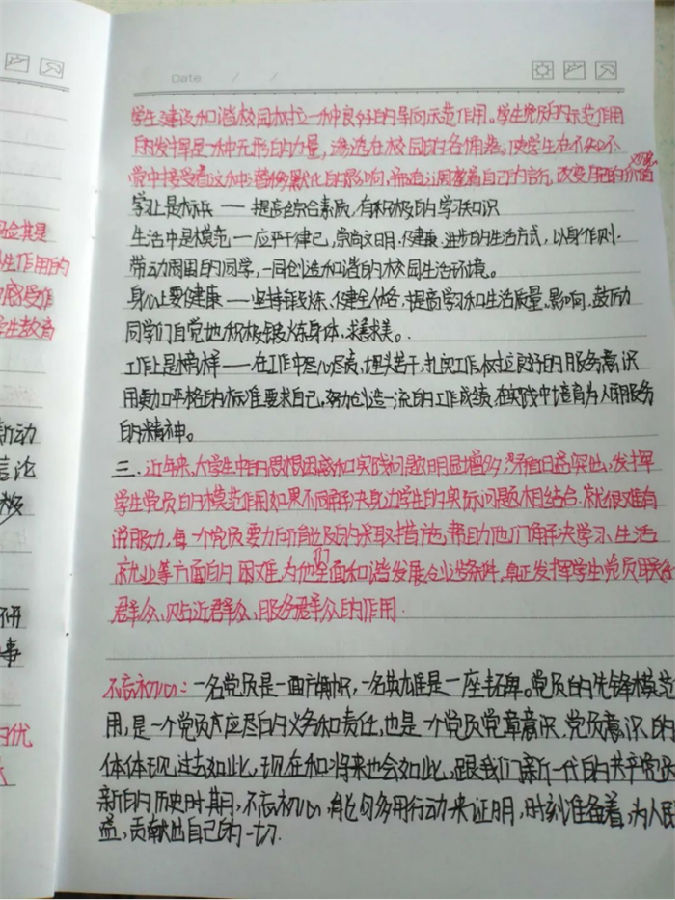 Date / /
学生建设和谐校园树立一种良好的导向示范作用。学生党员的示范作用
的发挥是一种无形的力量，渗透在校园的各个角落，使学生在不知不
觉中接受着这种潜移默化的影响，而自己调整着自己的言行，改变自己的价值
观念。
学习上是标兵——提高综合素质，有积极的学习知识
生活中是模范——应严于律己，崇尚文明、健康、进步的生活方式，以身作则．
带动周围的同学，一同创造和谐的校园生活环境。
身心上要健康——坚持锻炼、健全体格，提高学习和生活质量，影响、鼓励
同学们自觉地积极锻炼身体，求真求美。
工作上是榜样——在工作中尽心尽责，埋头苦干，扎实工作树立良好的服务意识
用更加严格的标准要求自己，努力创造一流的工作成绩，在实践中培育为人民服务
的精神。
三．近年来，大学生中的思想困惑和实践问题明显增多，矛盾日益突出，发挥
学生党员的模范作用如果不同解决身边学生的实际问题相结合，就很难有
说服力，每一个党员要力所能及的采取措施，帮助他们解决学习、生活
就业等方面的困难，为他们全面和谐发展创造条件，真正发挥学生党员联系
群众、贴近群众、服务群众的作用．
不忘初心：一名党员是一面旗帜，一名英雄是一座丰碑。党员的先锋模范
用，是一个党员应尽的义务和责任，也是一个党员党章意识、党员意识的
体体现，过去如此，现在和将来也会如此，跟我们新一代的共产党员
新的历史时期，不忘初心，能够多用行动来证明，时刻准备着，为人民
益，贡献出自己的一切．
验其是
生作用的
感受作
学生教育
新动
言论
极
研
事
的优